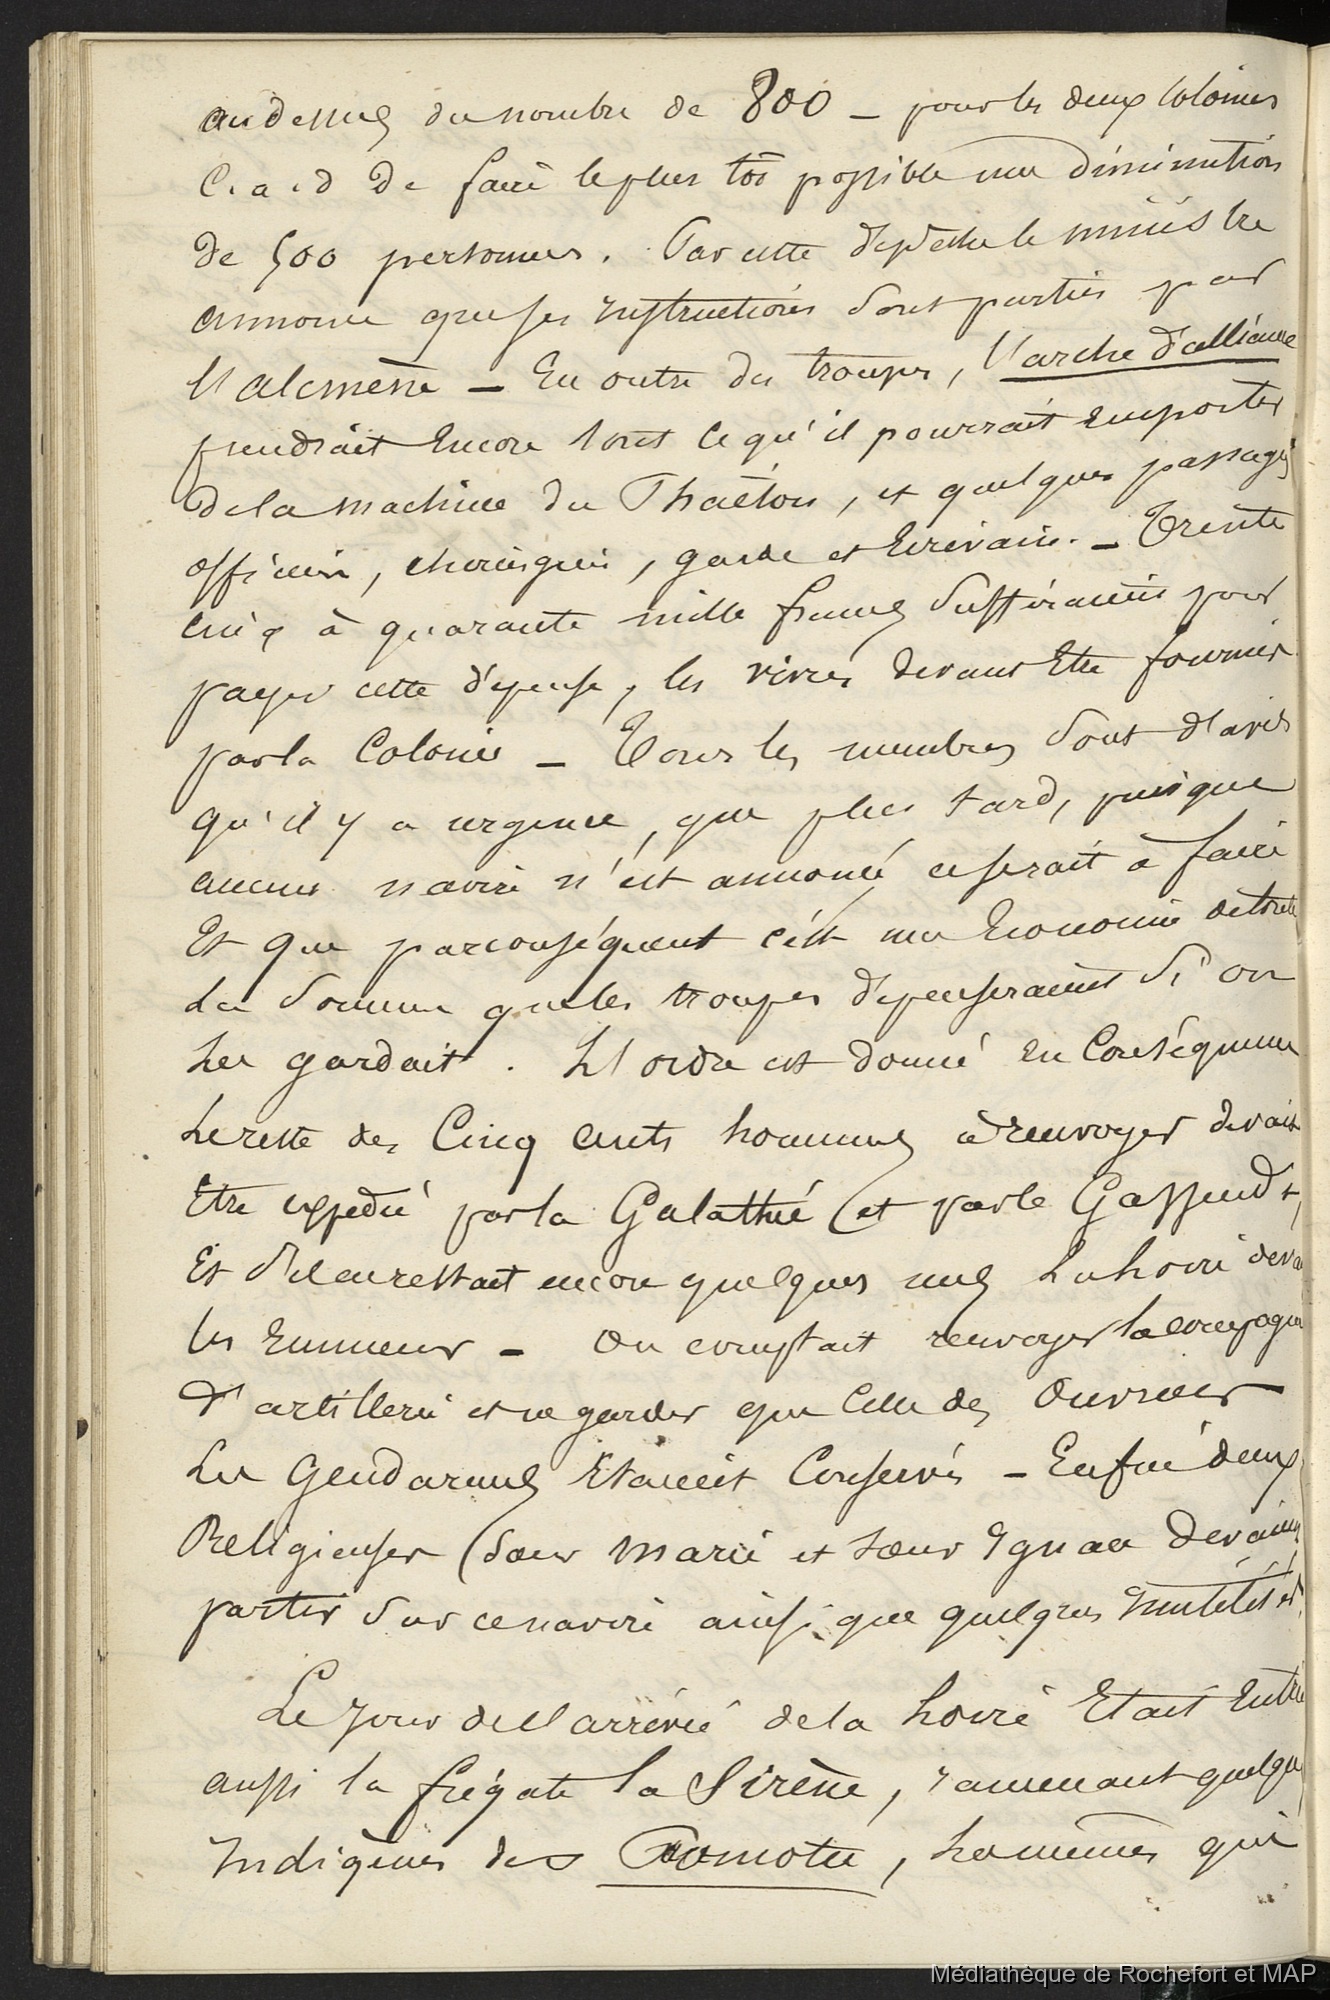 audessus du nombre de 800 – pour les deux Colonies
C. a. d De faire le plus tôt possible une diminution
de 500 personnes. Par cette dépêche le ministre
annonce que ses instructions sont parties par
l'alcmène – En outre des troupes, l'arche d'alliance
prendrait Encore tout ce qu'il pourrait Emporter
de la machine du Phaëton, et quelques passagers
officiers, chirurgien, garde et Ecrivain. – Trente
cinq à quarante mille francs suffiraient pour
payer cette dépense, les vivres devant Etre fournis
par la Colonie – Tous les membres sont d'avis
qu'il y a urgence, que plus tard, puisque
aucun navire n'est annoncé ce serait à faire
Et que par conséquent c'est une Economie de toute
La somme que les troupes dépenseraient si on
Les gardait. L'ordre est donné En Conséquence
Le reste des Cinq cents hommes à renvoyer devait
Etre expédié par la Galathée (et par le Gassendi,
Et s'il en restait encore quelques uns La Loire devait
les Emmener – On comptait renvoyer la compagnie
d'artillerie et ne garder que Celle des Ouvriers
Les Gendarmes Etaient Conservés – Enfin deux
Religieuses (Sœur Marie et sœur Ignace Devaient
partir sur ce navire ainsi que quelques Emutilés et
Le Jour de l'arrivée de la Loire Etait Entrée
aussi la frégate la Sirène, ramenant quelques
Indigènes des Pomotu, Les mêmes qui
Médiathèque de Rochefort et MAP